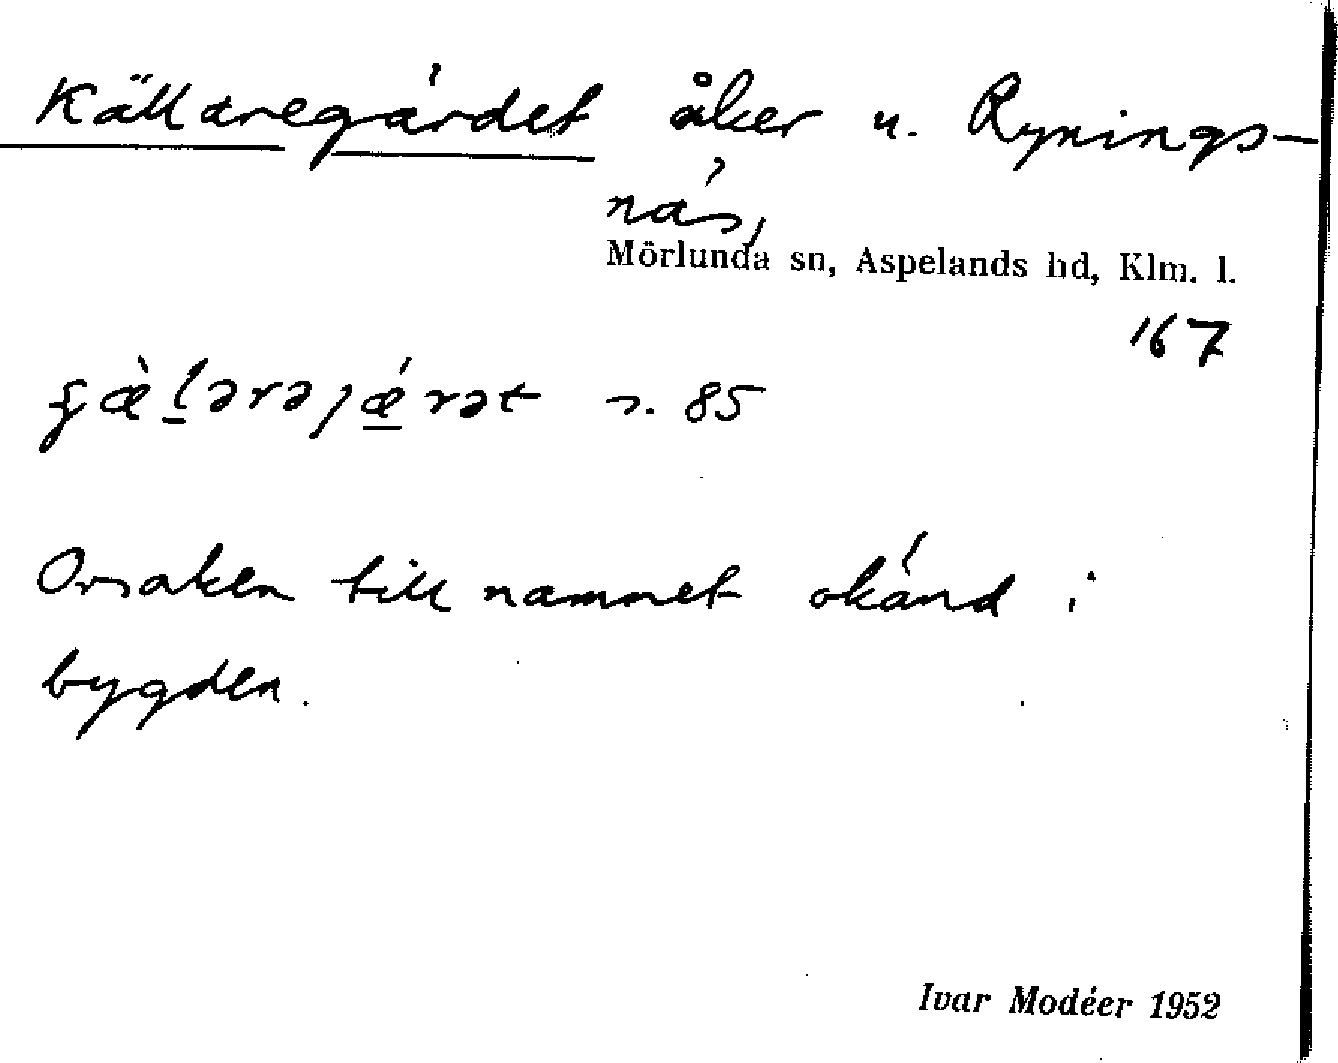 Källaregärdet åker u. Rynings-
näs,
Mörlunda sn, Aspelands hd, Klm. l.
167
s. 85
Orsaken till namnet okänd i
bygden.
Ivar Modéer 1952